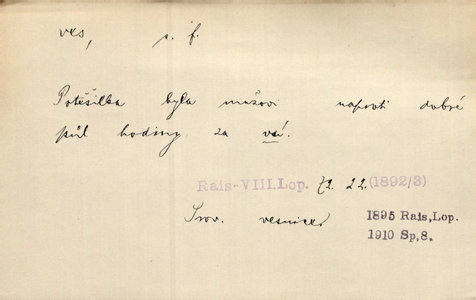 ves, s. f.
Potěšilka byla mužovi naproti dobré
půl hodiny za vsí.
Rais-VIII.Lop. 22. (1892/3)
Srov. vesnice
1895 Rais,Lop.
1910 Sp,8.